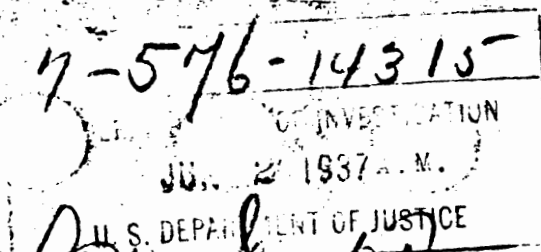 7-576-14315
OF INVESTIGATION
2 1937 A.M.
U. S. DEPARTMENT OF JUSTICE